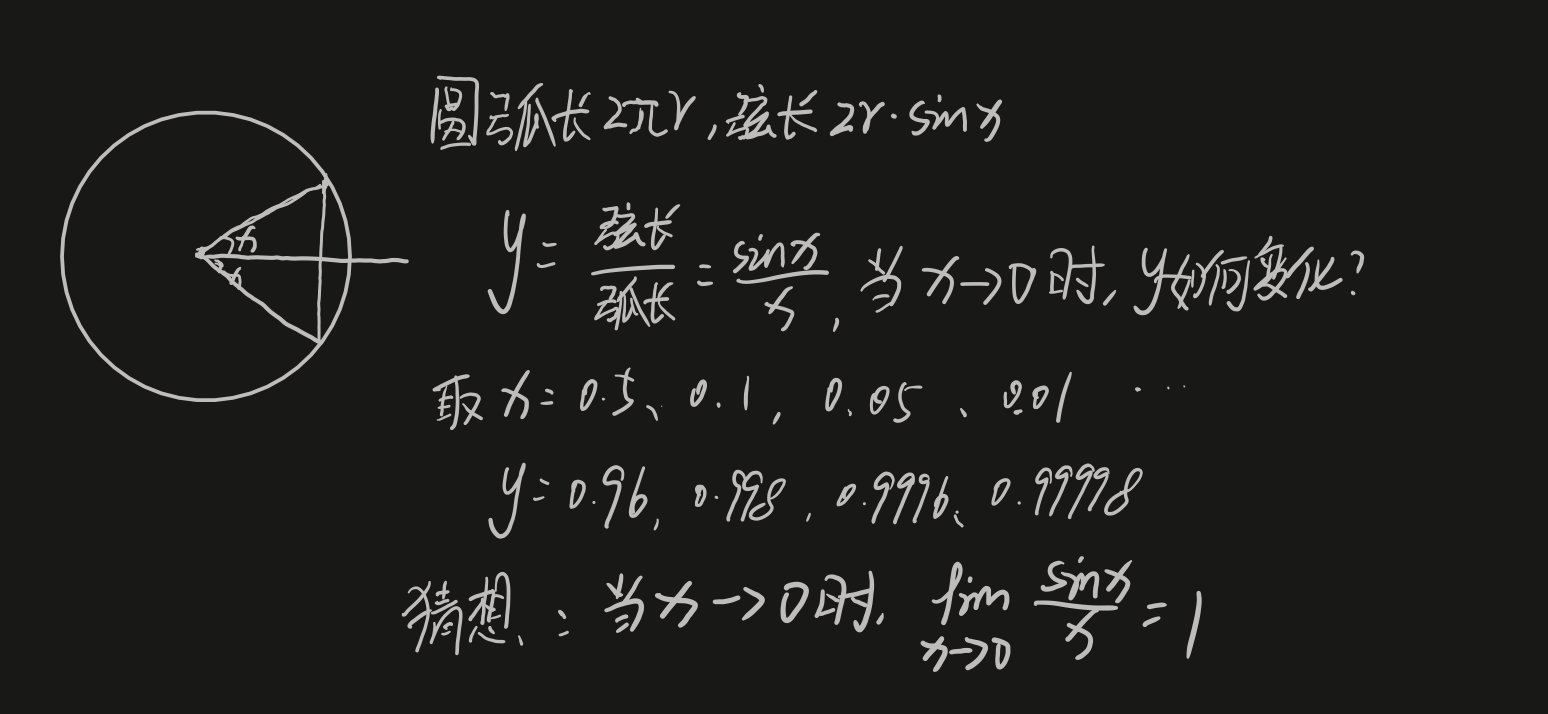 圆弧长2πr,弦长2r·sinx
x
x
y=弦长/弧长=sinx/x,当x→0时,y如何变化?
取x=0.5、0.1,0.05、0.01 ...
y=0.96,0.998,0.9996、0.99998
猜想:当x→0时,lim x→0 sinx/x=1